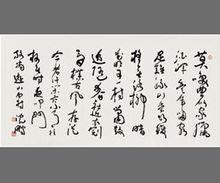 莫笑農家臘
酒渾豐年留客
足雞豚山重水複
疑無路柳暗
花明又一村簫鼓
追隨春社近衣冠
簡樸古風存從
今若許閑乘月
拄杖無時夜叩門
放翁遊山西村 沈鵬